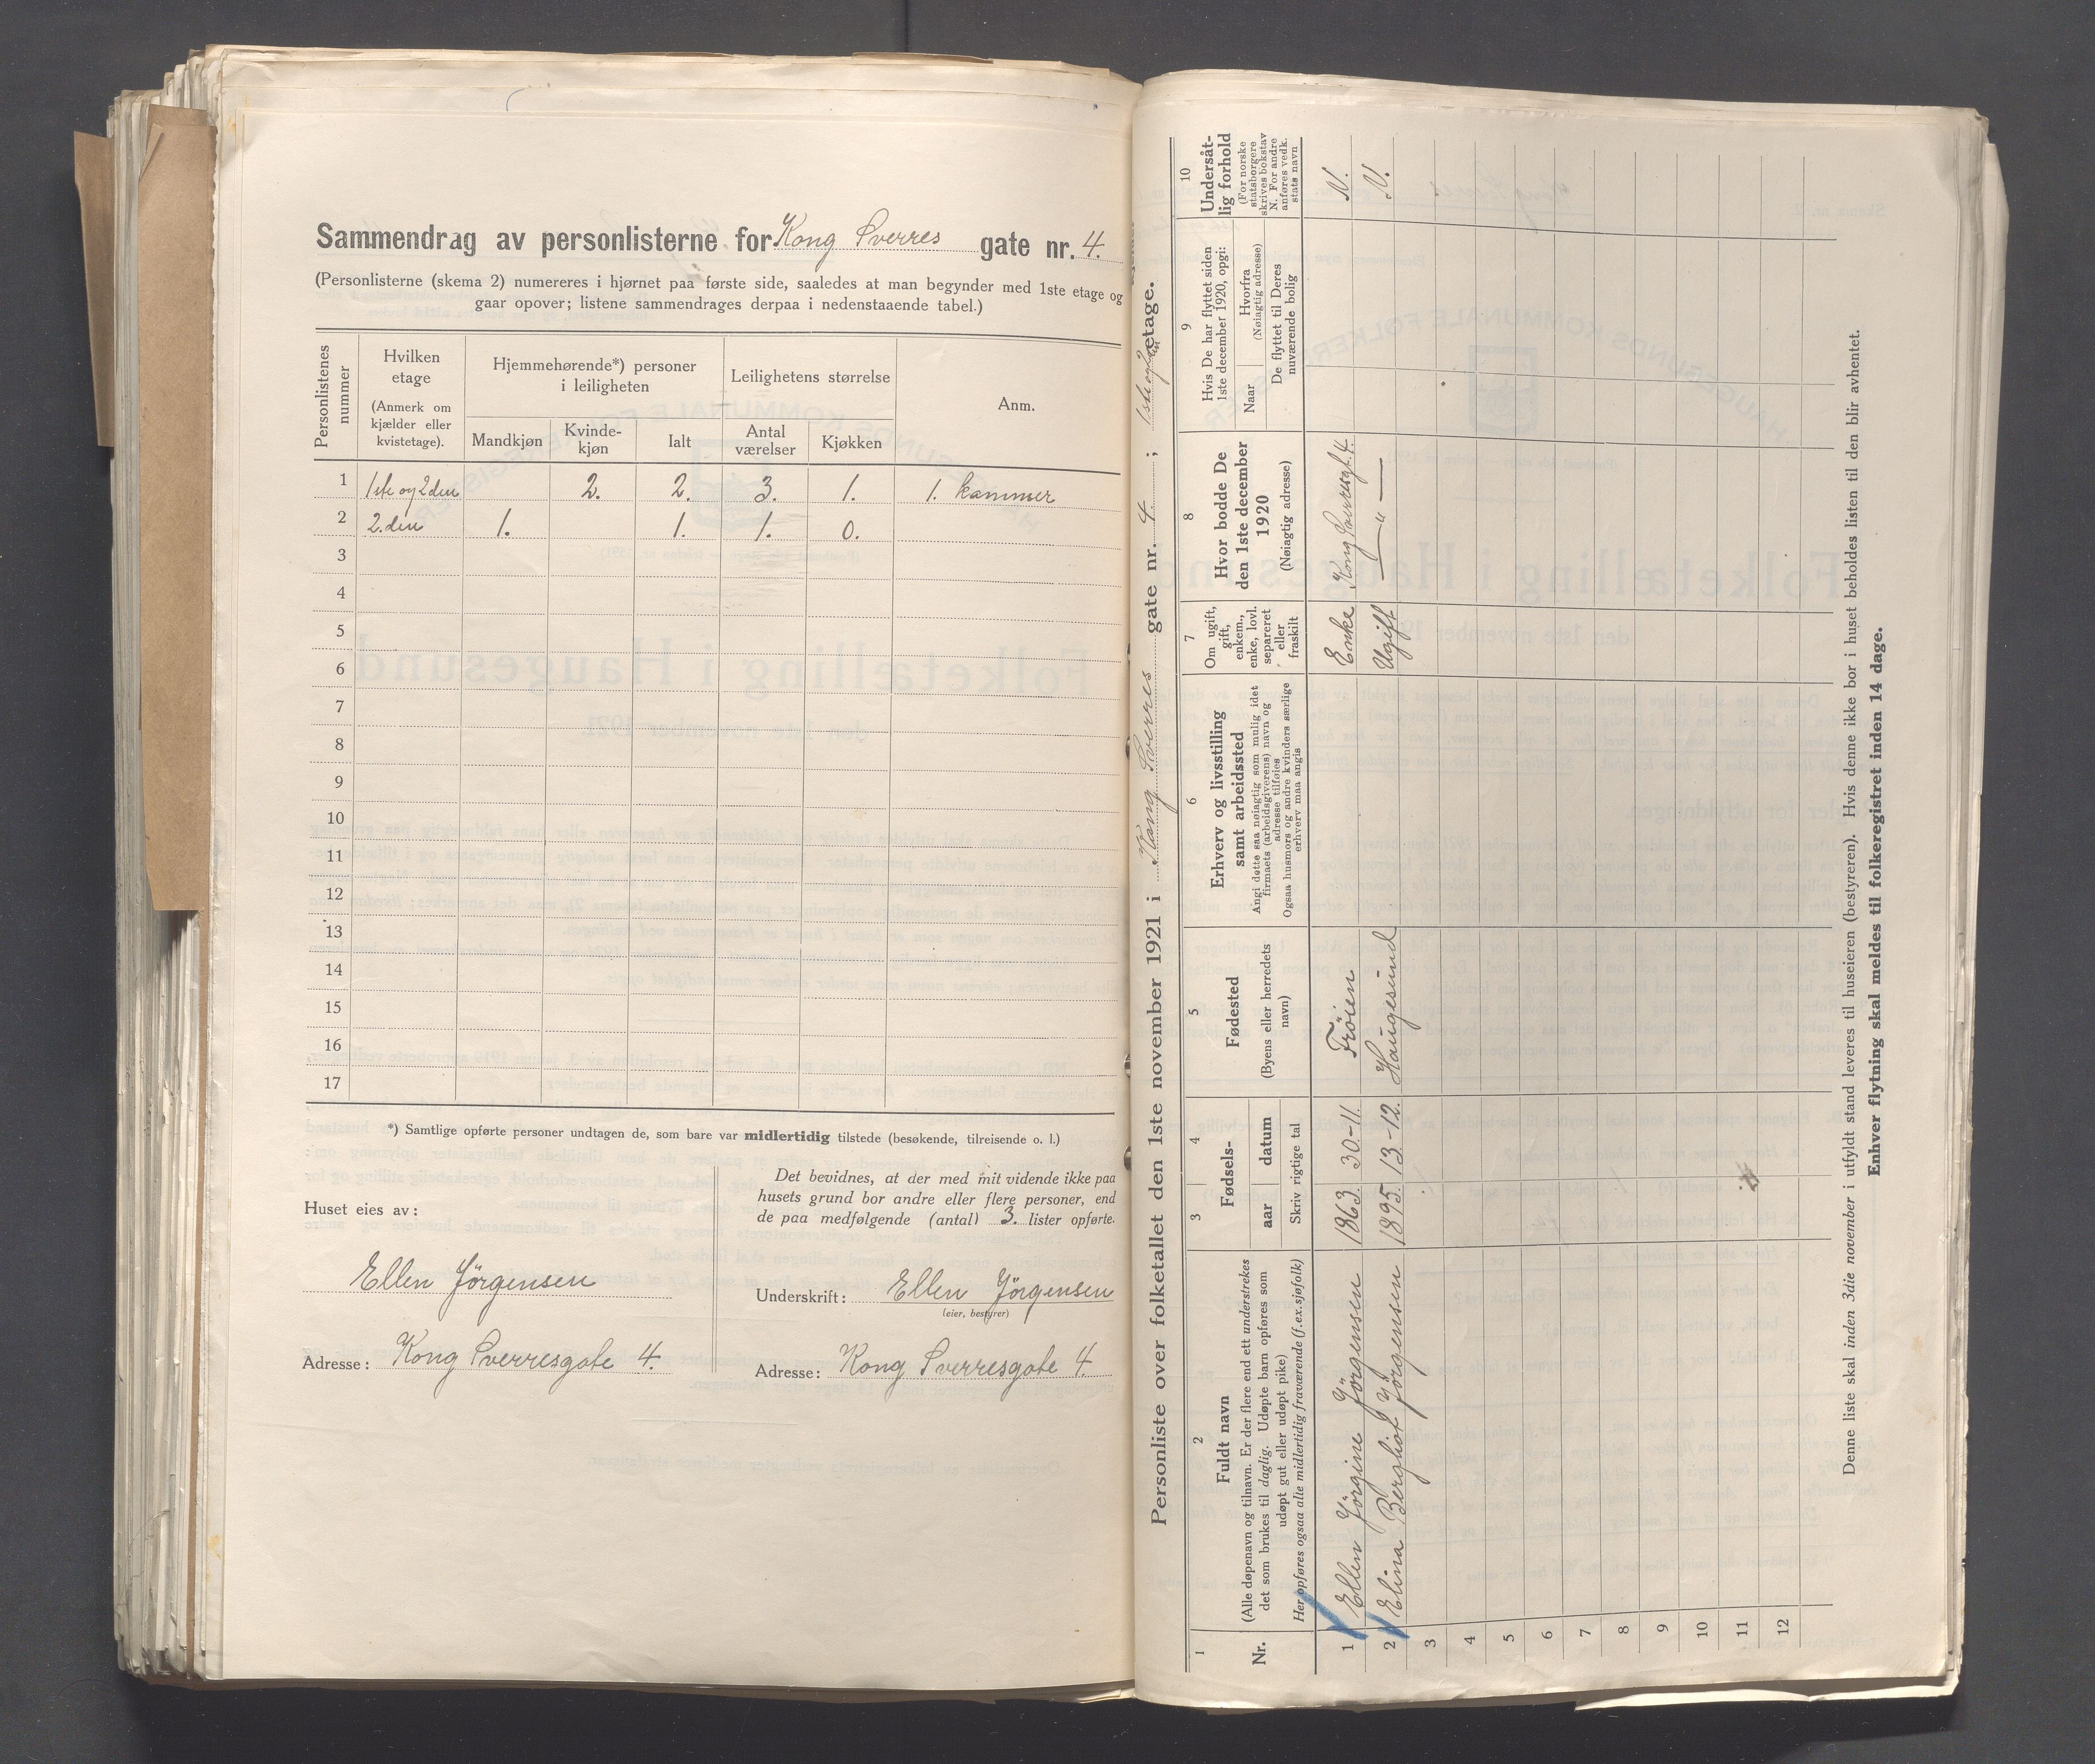 Sammendrag av personlisterne for Kong Sverres gate nr. 4.
(Personlisterne (skema 2) numereres i hjørnet paa første side, saaledes at man begynder med 1ste etage og
gaar opover; listene sammendrages derpaa i nedenstaaende tabel.)
Personlistenes nummer
Hvilken etage
(Anmerk om kjælder eller kvistetage).
Hjemmehørende*) personer i leiligheten
Mandkjøn
Kvindekjøn
Ialt
Leilighetens størrelse
Antal værelser
Kjøkken
Anm.
1 1ste og 2den 2. 2. 3. 1. 1. kammer
2 2.den 1. 1. 1. 0.
3
4
5
6
7
8
9
10
11
12
13
14
15
16
17
*) Samtlige opførte personer undtagen de, som bare var midlertidig tilstede (besøkende, tilreisende o. l.)
Huset eies av:
Ellen Jörgensen
Adresse: Kong Sverresgate 4.
Det bevidnes, at der med mit vidende ikke paa
husets grund bor andre eller flere personer, end
de paa medfølgende (antal) 3. lister opførte.
Underskrift: Ellen Jörgensen
(eier, bestyrer)
Adresse: Kong Sverresgate 4.
Personliste over folketallet den 1ste november 1921 i Kong Sverres gate nr. 4; 1ste og 2den etage.
1
Nr.
2
Fuldt navn
(Alle døpenavn og tilnavn. Er der flere end ett understrekes
det som brukes til daglig. Udøpte barn opføres som
udøpt gut eller udøpt pike)
Her opføres ogsaa alle midlertidig fraværende (f.ex.sjøfolk)
3
4
Fødsels-
aar
datum
Skriv rigtige tal
5
Fødested
(Byens eller herredets
navn)
6
Erhverv og livsstilling
samt arbeidssted
Angi dette saa nøiagtig som mulig idet
firmaets (arbeidsgiverens) navn og
adresse tilføies
Ogsaa husmors og andre kvinders særlige
erhverv maa angis
7
Om ugift,
gift,
enkem.,
enke, lovl.
separeret
eller
fraskilt
8
Hvor bodde De
den 1ste december
1920
(Nøiagtig adresse)
9
Hvis De har flyttet siden
1ste december 1920, opgi:
Naar
Hvorfra
(Nøiagtig adresse)
De flyttet til Deres
nuværende bolig
10
Undersåt-
lig forhold
(For norske
statsborgere
skrives bokstav
N. For andre
anføres vedk.
stats navn
1 Ellen Jörgine Jörgensen 1863 30-11. Fröien Enke Kong Sverresgt. 4. N.
2 Elina Bergliot Jörgensen 1895 13-12. Haugesund Ugift — " — N.
3
4
5
6
7
8
9
10
11
12
Denne liste skal inden 3die november i utfyldt stand leveres til huseieren (bestyreren). Hvis denne ikke bor i huset beholdes listen til den blir avhentet.
Enhver flytning skal meldes til folkeregistret inden 14 dage.